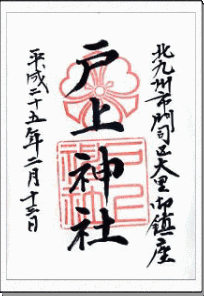 北九州市門司区大里御鎮座
戸上神社
平成二十五年二月十三日